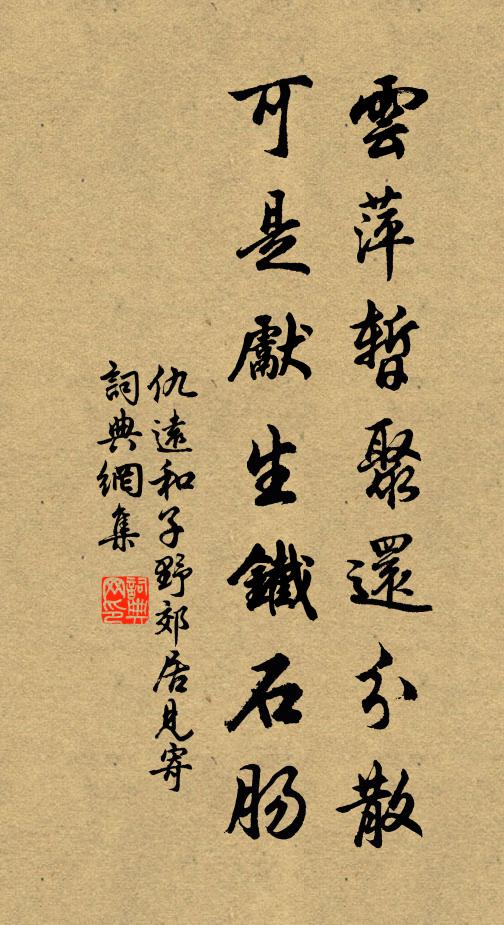 雲萍暫聚還分散
可是獻生鐵石腸
仇遠和子野郊居見寄
詞典網集
詞典網印